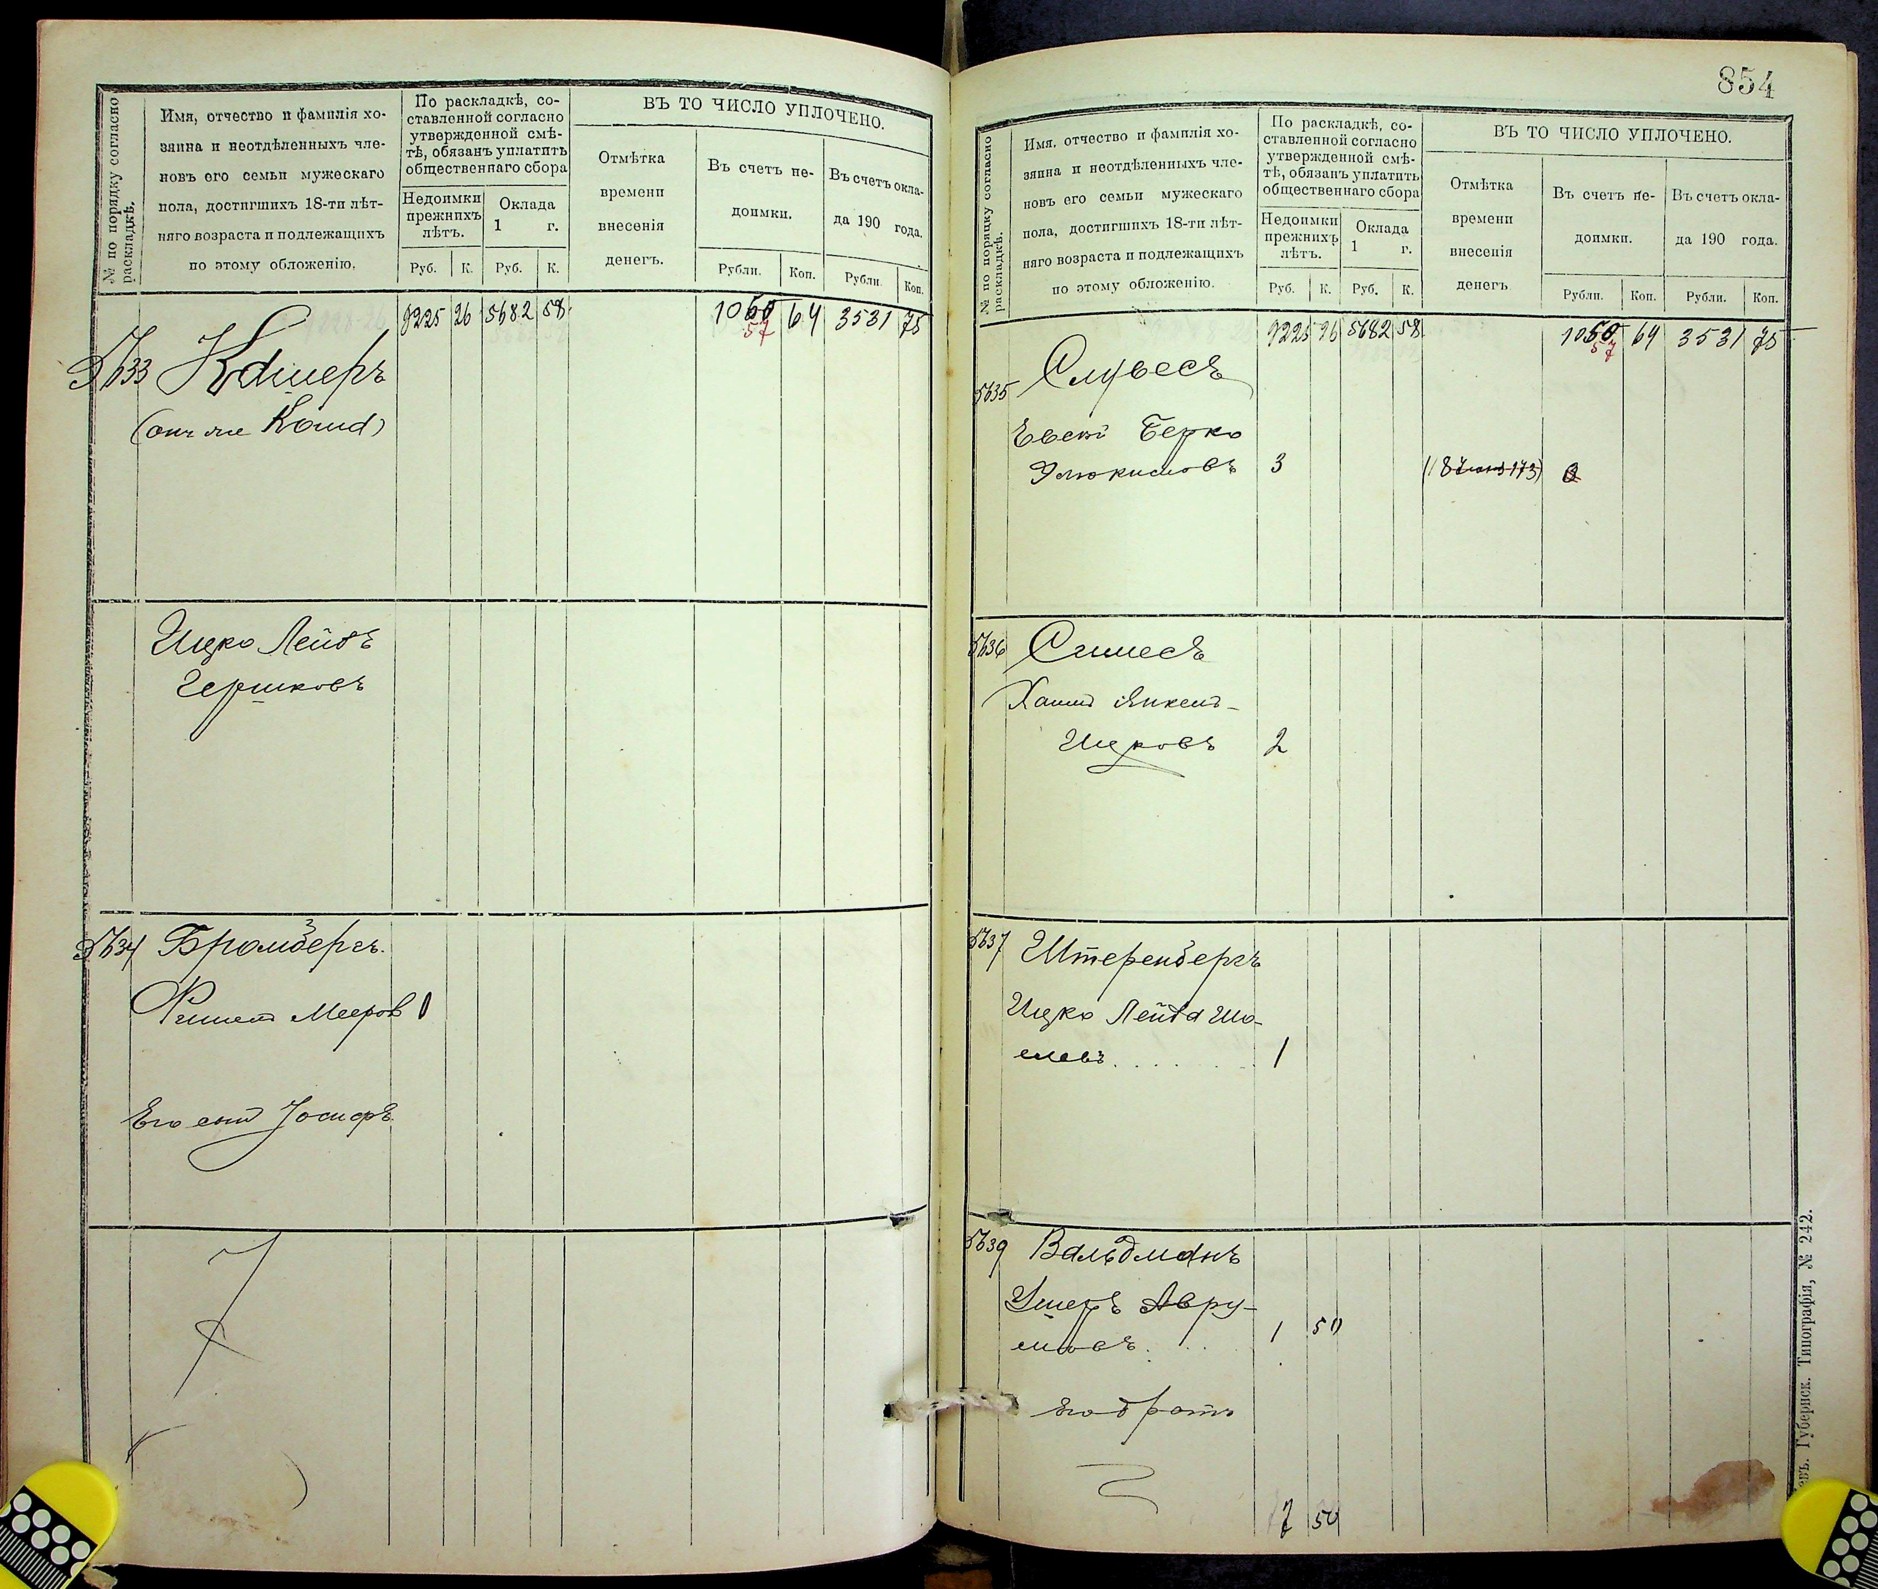 № по порядку согласно
раскладкѣ.
Имя, отчество и фамилія хо-
зяина и неотдѣленныхъ чле-
новъ его семьи мужескаго
пола, достигшихъ 18-ти лѣт-
няго возраста и подлежащихъ
по этому обложенію.
По раскладкѣ, со-
ставленной согласно
утвержденной смѣ-
тѣ, обязанъ уплатить
общественнаго сбора
Недоимки
прежнихъ
лѣтъ.
Оклада
1 г.
Руб. К. Руб. К.
ВЪ ТО ЧИСЛО УПЛОЧЕНО.
Отмѣтка
времени
внесенія
денегъ.
Въ счетъ не-
доимки.
Въ счетъ окла-
да 190 года.
Рубли. Коп. Рубли. Коп.
9225 26 5682 58 1060 64 3531 75
57
5633 Кашеръ
(онъ же
Ицко Лейбъ
Гершковъ
5634 Бромбергъ
Мееров 1
Его сынъ Іосифъ
854
№ по порядку согласно
раскладкѣ.
Имя, отчество и фамилія хо-
зяина и неотдѣленныхъ чле-
новъ его семьи мужескаго
пола, достигшихъ 18-ти лѣт-
няго возраста и подлежащихъ
по этому обложенію.
По раскладкѣ, со-
ставленной согласно
утвержденной смѣ-
тѣ, обязанъ уплатить
общественнаго сбора
Недоимки
прежнихъ
лѣтъ.
Оклада
1 г.
Руб. К. Руб. К.
ВЪ ТО ЧИСЛО УПЛОЧЕНО.
Отмѣтка
времени
внесенія
денегъ
Въ счетъ не-
доимки.
Въ счетъ окла-
да 190 года.
Рубли. Коп. Рубли. Коп.
9225 26 5682 58 1050 64 3531 75
57
5635
Берко
3
5636
Хаимъ Янкель-
Ицковъ 2
5637 Штеренбергъ
Ицко Лейба Шо-
елевъ 1
5639 Вальдманъ
Ушеръ Авру-
мовъ 1 50
его братъ
7 50
Губернск. Типографія, № 242.